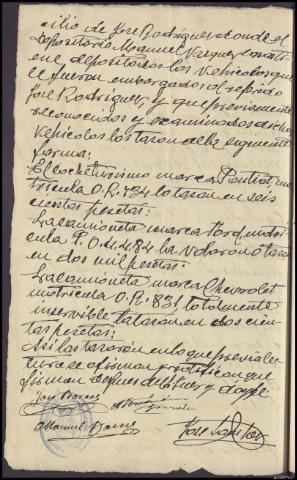 cilio de Jose Rodriguez donde el
Depositario Manuel Vazquez
tiene depositados los vehiculos que
le fueron embargados al referido
Jose Rodriguez, y que previamente
reconocidos y examinados dichos
vehiculos los tasan de la seguiente
forma:
El coche turismo marca Pontiat, ma
tricula O.R. 734 lo tasan en seis
cientas pesetas:
La camioneta marca Ford matri
cula la valoran o tasan
en dos mil pesetas:
La camioneta marca Chevrolet
matricula O.R. 831, totalmente
inservible la tasan en dos cien
tas pesetas:
Asi las tasaron en lo que previa lec
tura se afirman y ratifican que
firman despues del Sr Juez y doy fe
Manuel
Jose